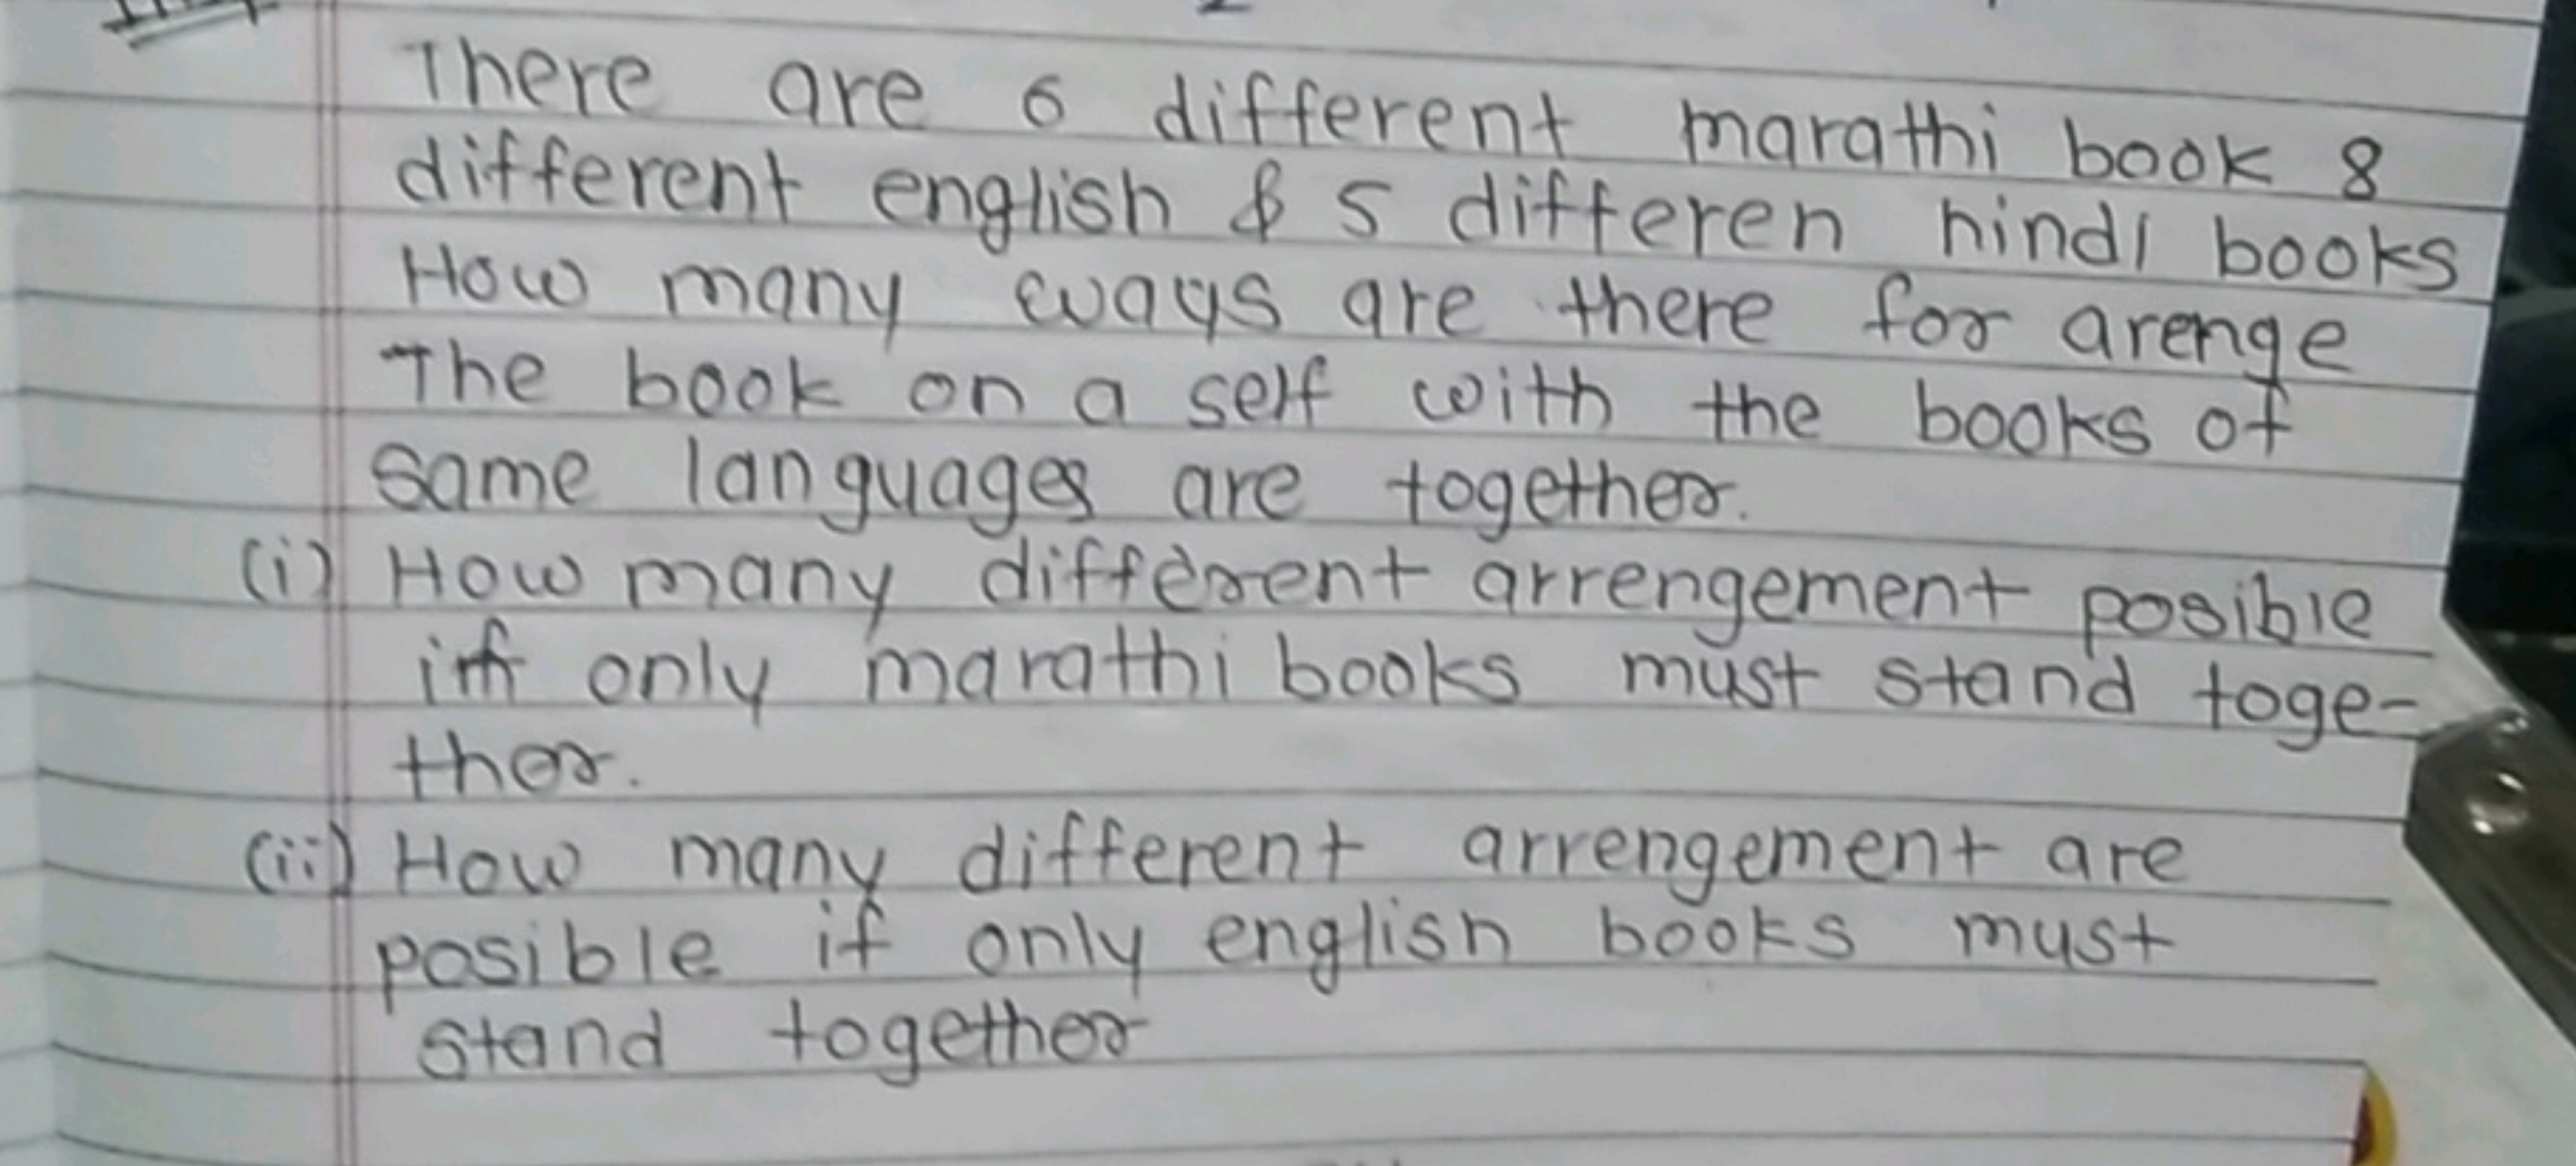 There are 6 different marathi book 8
different english & 5 differen hindi books
How many ways are there for arenge
The book on a self with the books of
same languages are together.
(i) How many different arrengement posible
if only marathi books must stand toge-
ther.
(ii) How many different arrengement are
posible if only english books must
stand together